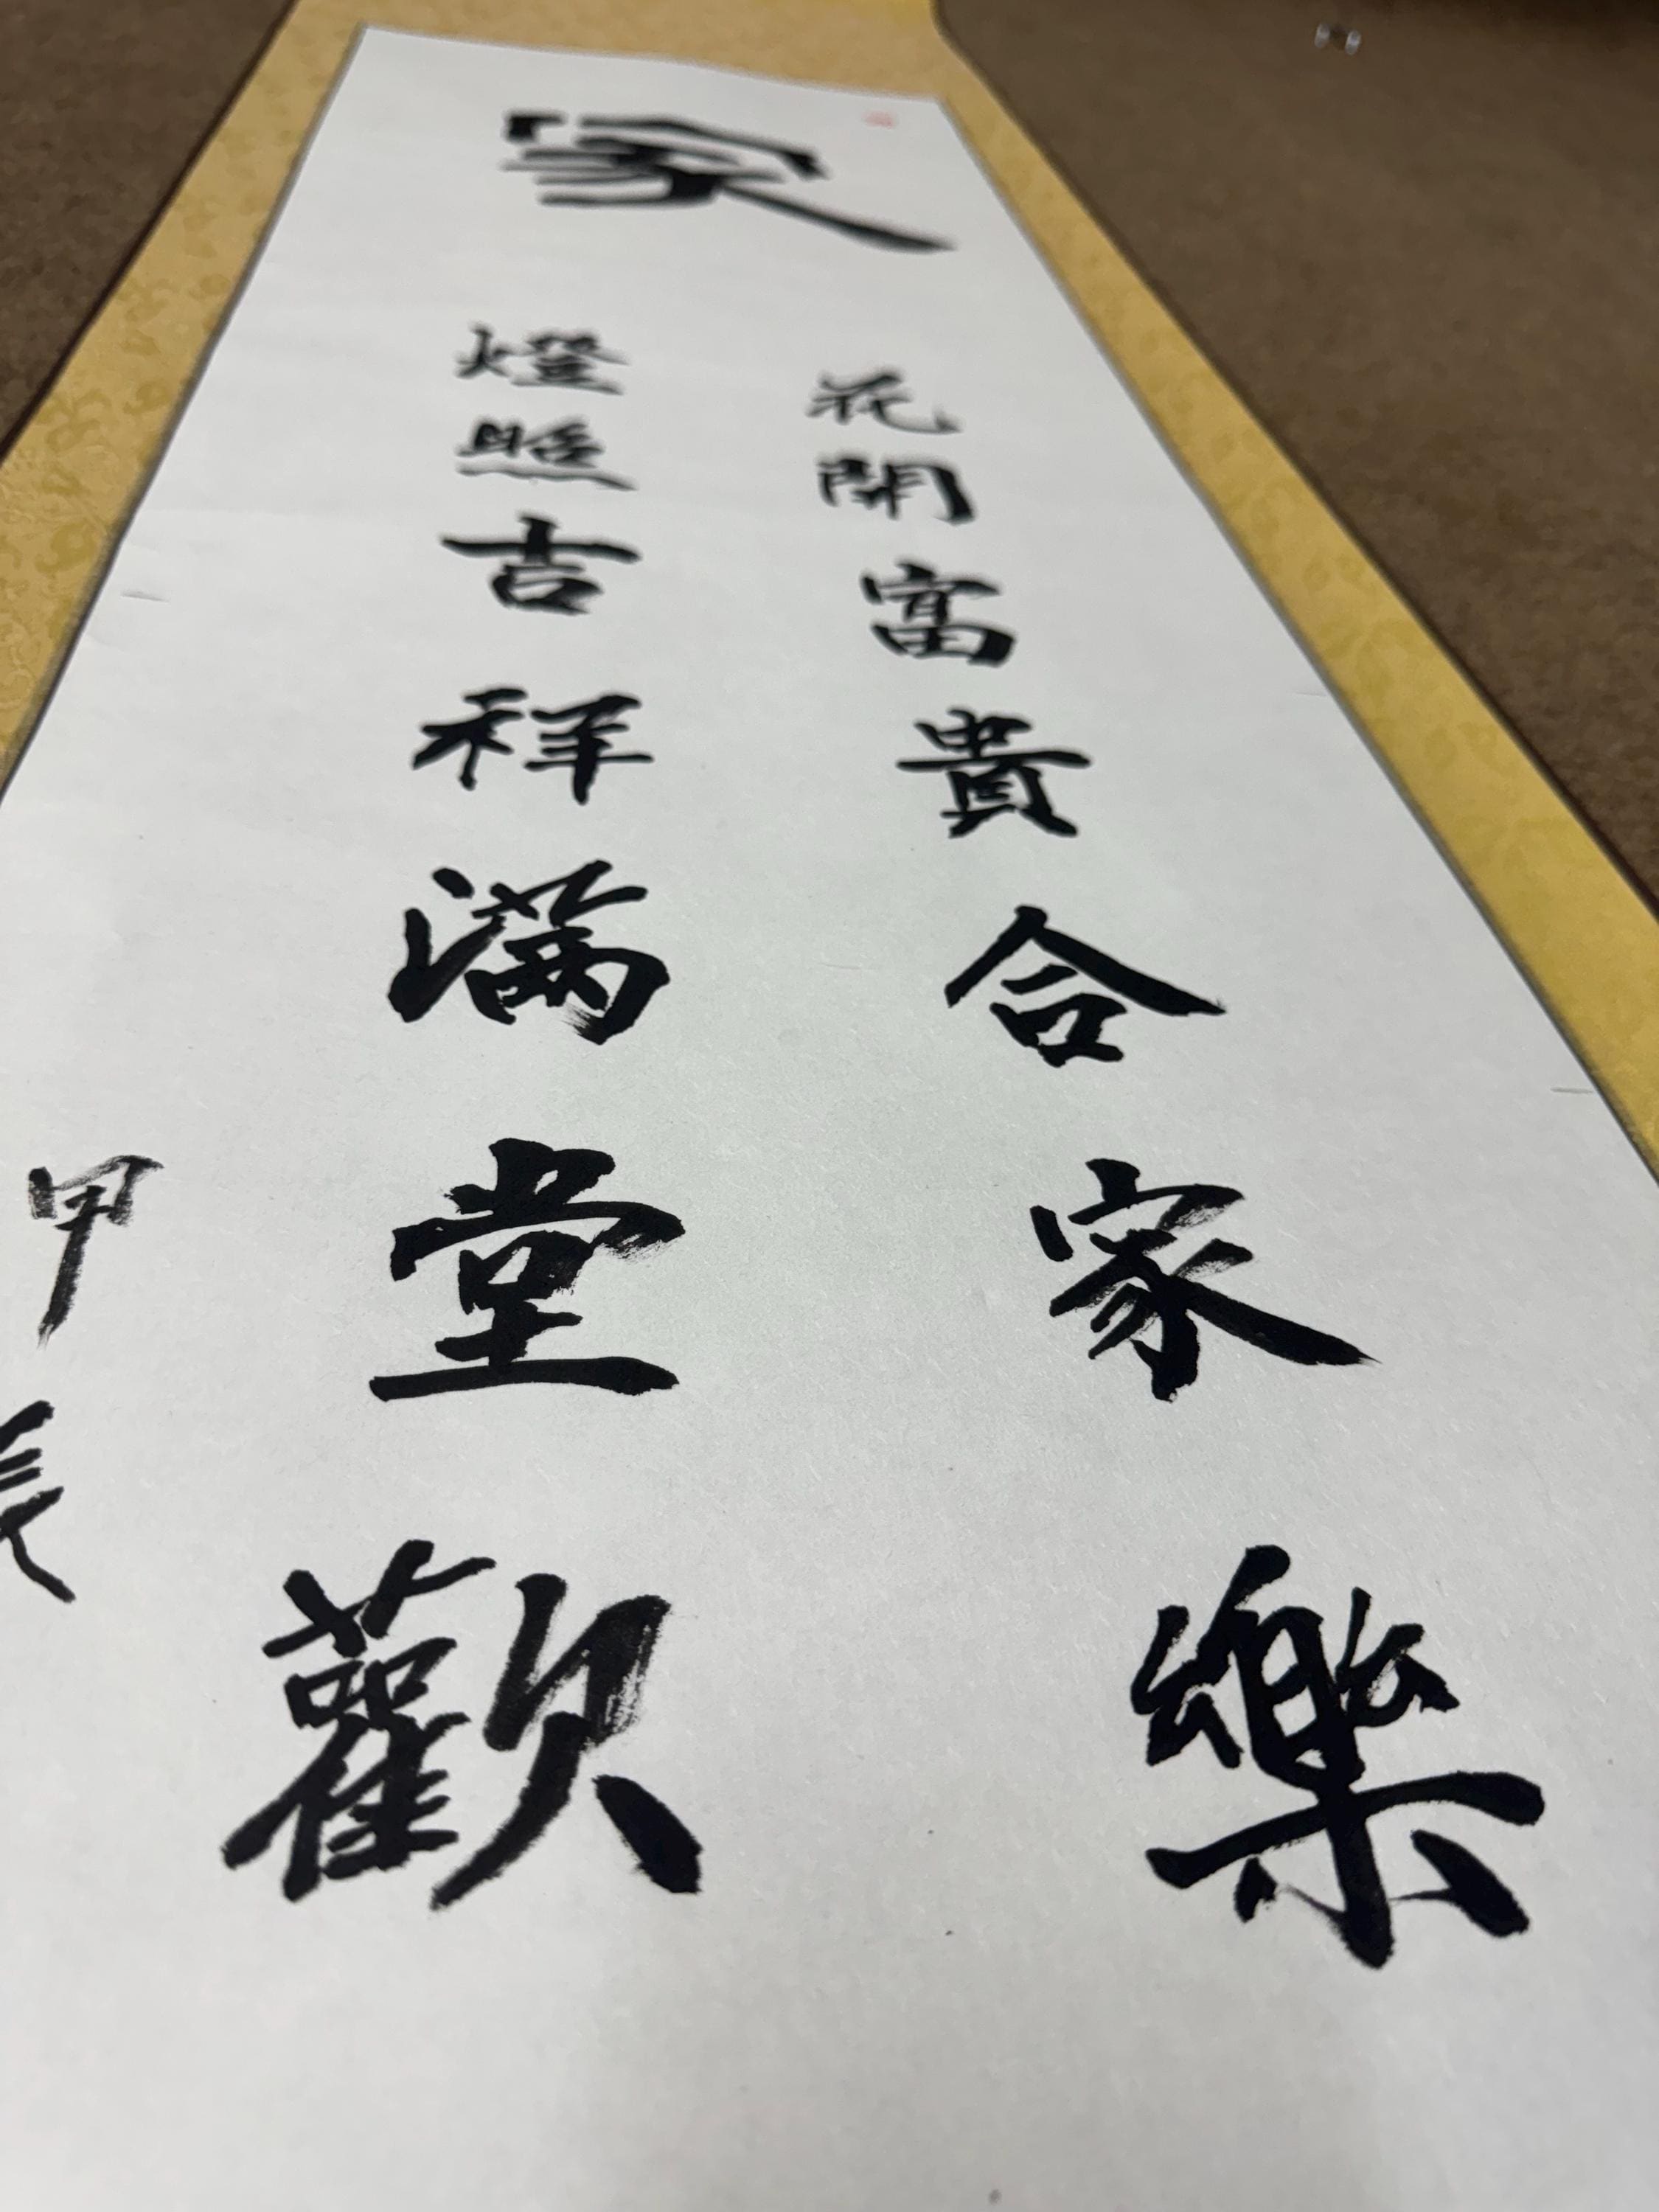 家
花開富貴合家樂
燈照吉祥滿堂歡
甲辰